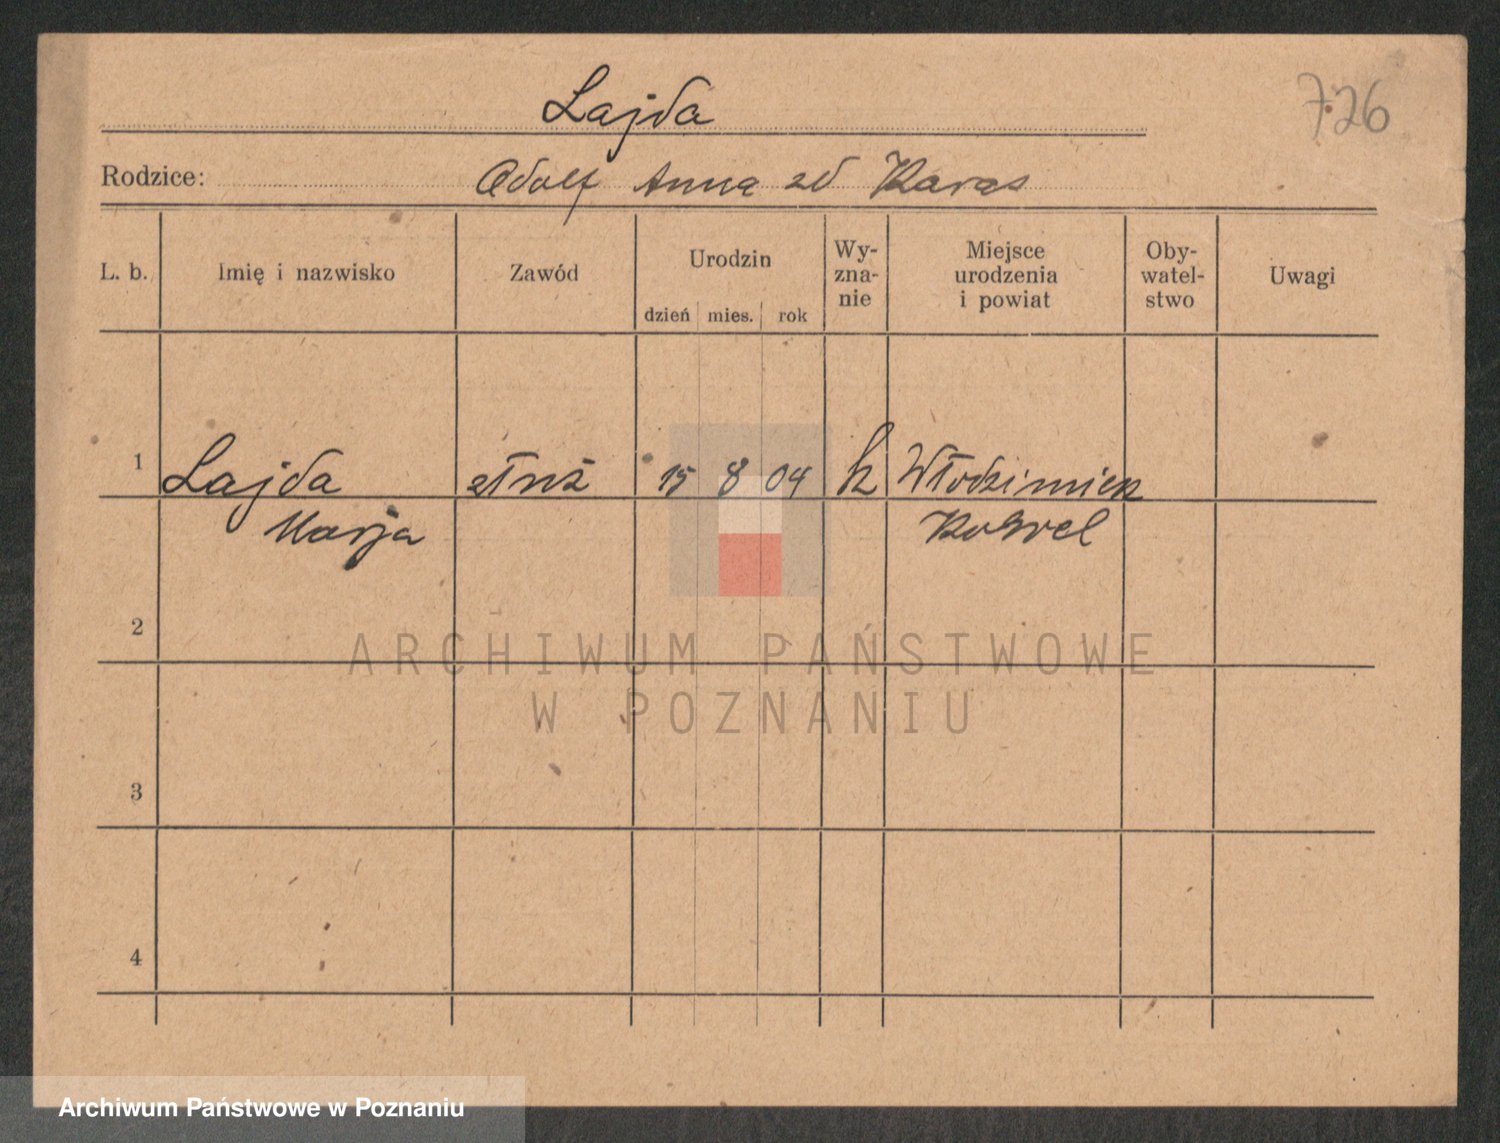 Lajda
726
Rodzice: Adolf Anna zd Karas
L. b.
Imię i nazwisko
Zawód
Urodzin
dzień mies. rok
Wy-
zna-
nie
Miejsce
urodzenia
i powiat
Oby-
watel-
stwo
Uwagi
1 Lajda służ 15 8 04 k Włodzimierz
Marja Kowel
2
3
4
ARCHIWUM PAŃSTWOWE
W POZNANIU
Archiwum Państwowe w Poznaniu